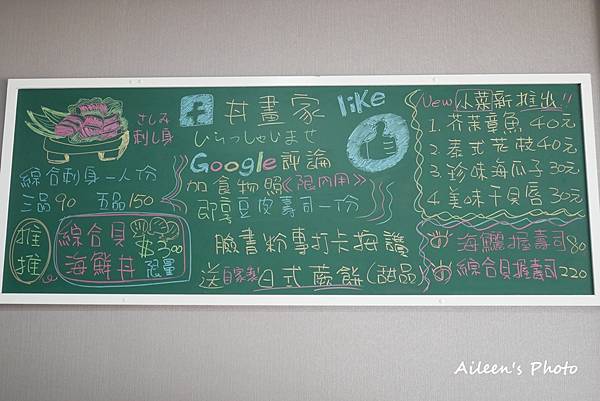 さしみ
刺し身
綜合刺身一人份
三品90 五品150
推
推
綜合貝
海鮮丼
限量
f 丼畫家 like
いらっしゃいませ
Google評論
加食物照《限內用》
即享豆皮壽司一份
臉書粉專打卡按讚
送自家製日式蕨餅(甜品)
New 小菜新推出!!
1. 芥茉章魚 40元
2. 泰式花枝 40元
3. 珍味海瓜子 30元
4. 美味干貝唇 30元
海鱺握壽司80
綜合貝握壽司220
Aileen's Photo